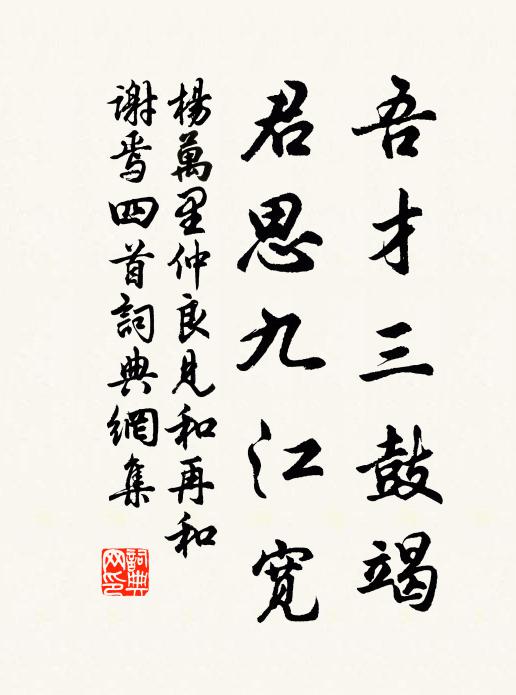 吾才三鼓竭
君思九江寬
楊萬里仲良見和再和
謝焉四首詞典網集
詞典网印